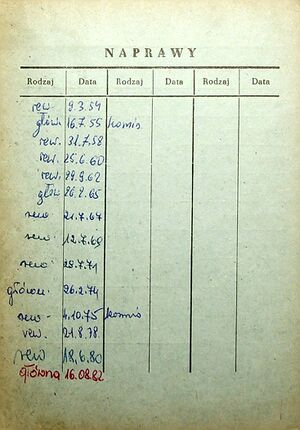 NAPRAWY
Rodzaj Data Rodzaj Data Rodzaj Data
rew. 9.3.54
główn. 16.7.55 komis
rew. 31.7.58
rew. 25.6.60
rew. 29.9.62
głów 26.2.65
rew 21.7.67
rew. 12.7.69
rew 28.7.71
główn. 26.2.74
rew - 4.10.75 komis
rew. 21.8.78.
rew 18.6.80
główna 16.08.82